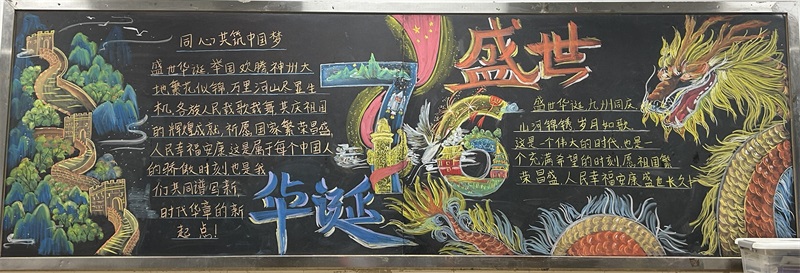 同心共筑中国梦
盛世华诞举国欢腾神州大
地繁花似锦万里河山尽显生
机各族人民载歌载舞共庆祖国
的辉煌成就祈愿国家繁荣昌盛
人民幸福安康这是属于每个中国人
的骄傲时刻也是我
们共同谱写新
时代华章的新
起点!
华诞
76
盛世
盛世华诞九州同庆
山河锦绣岁月如歌
这是一个伟大的时代也是一
个充满希望的时刻愿祖国繁
荣昌盛人民幸福安康盛世长久!